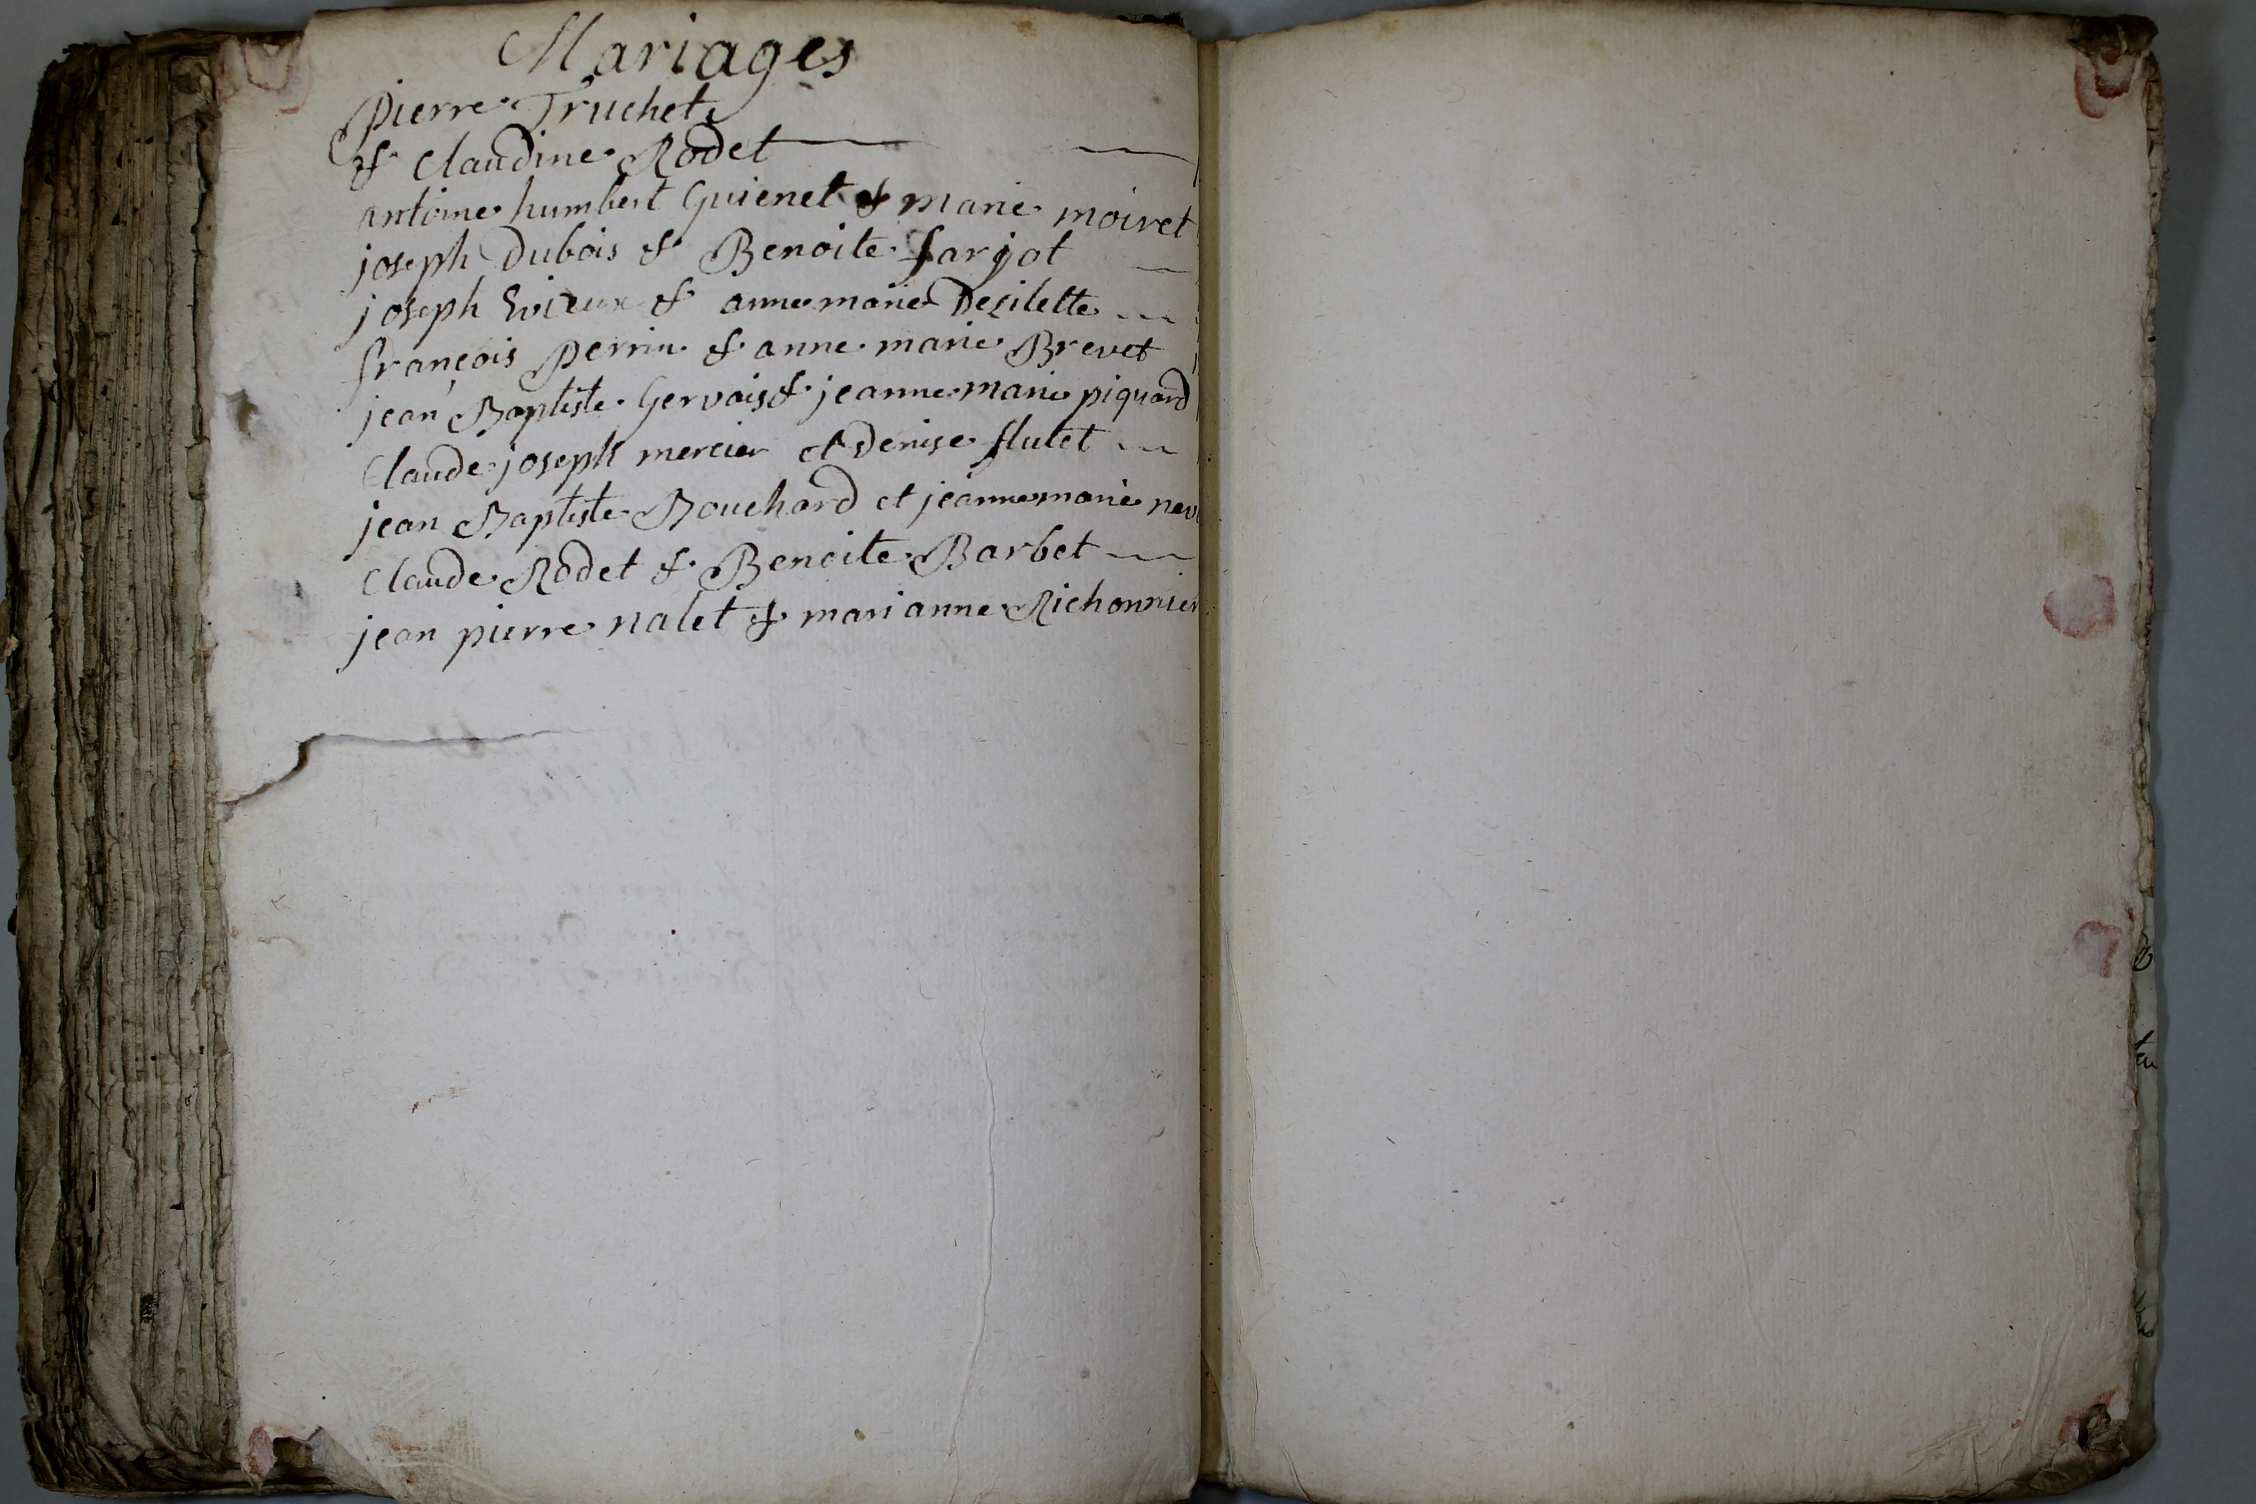 Mariages
Pierre Truchet
& Claudine Rodet
antoine humbert Guienet & marie moiret
joseph Dubois & Benoite farjot
joseph & anne marie Desilette
françois Perrin & anne marie Brevet
jean Baptiste Gervais & jeanne marie piquard
Claude joseph mercier et Denise flutet
jean Baptiste Bouchard et jeanne marie
Claude Rodet & Benoite Barbet
jean pierre nalet & marianne Richonnier